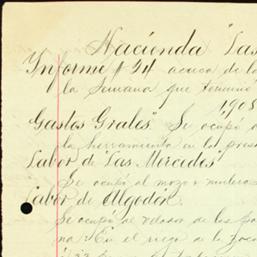 Hacienda "Las
Informe # 24 acerca de la
la Semana que terminó
1905
Gastos Grales." Se ocupó
la herramienta en los pres
Labor de "Las Mercedes"
Se ocupó al mozo
Labor de Algodón.
Se ocupó de velador de los
na. En el riego de la